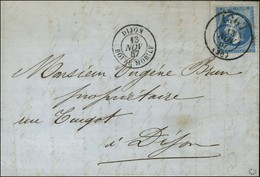 DIJON
13
NOV
67
BOITE MOBILE
Monsieur Eugène Brun
propriétaire
rue Turgot
à Dijon